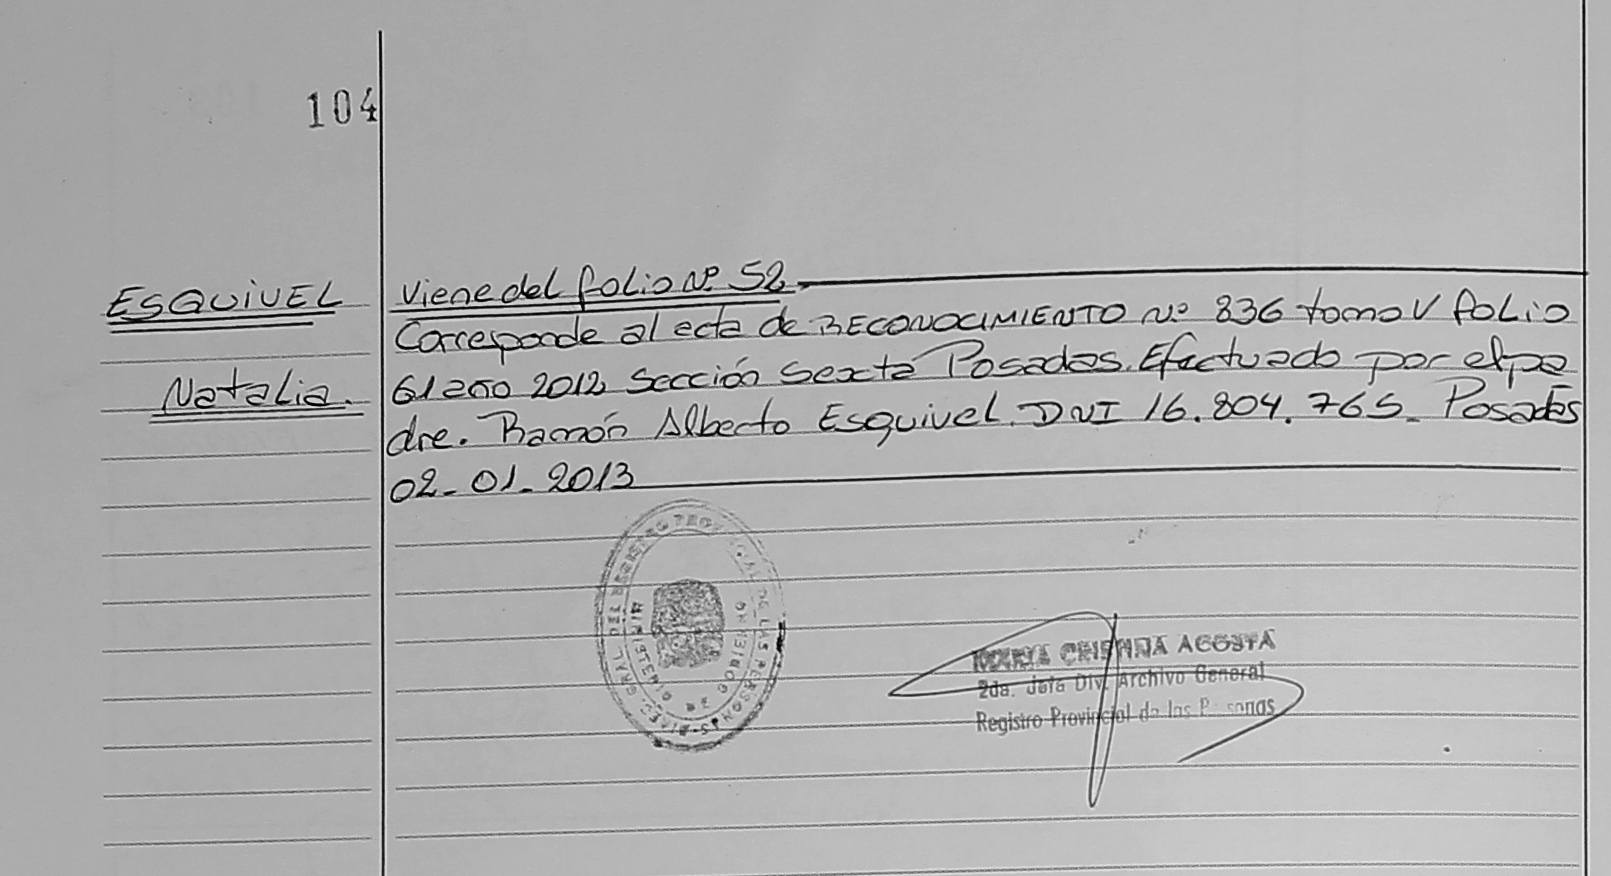 104
ESQUIVEL
Natalia.
Viene del folio Nº 52.
Corresponde al acta de RECONOCIMIENTO Nº 836 tomo V folio
61 año 2012 Sección Sexta Posadas. Efectuado por el pa
dre. Ramón Alberto Esquivel. DNI 16.804.765. Posadas
02-01-2013
DIREC. GRAL DEL REGISTRO PROVINCIAL DE LAS PERSONAS
MINISTERIO DE GOBIERNO
MARIA CRISTINA ACOSTA
2da. Jefa Div. Archivo General
Registro Provincial de las Personas